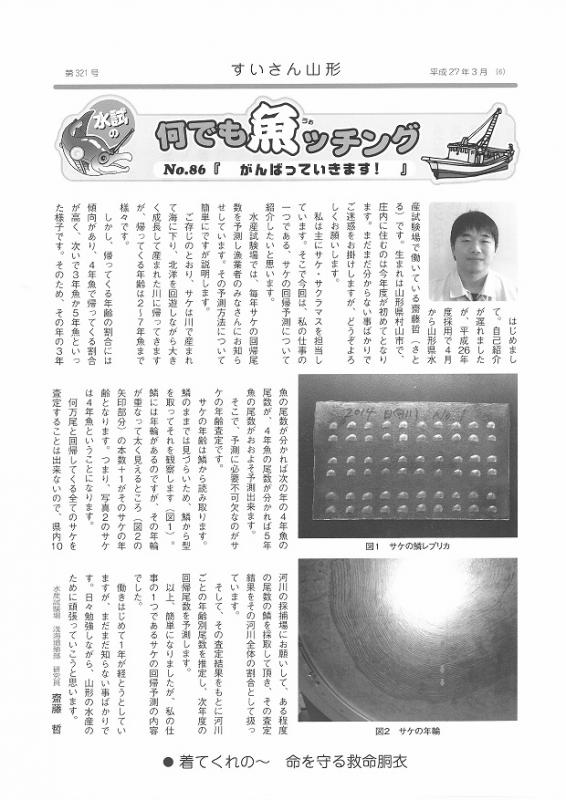 第321号
すいさん山形
平成27年3月 (6)
水試の
何でも魚ッチング
うお
No.86『 がんばっていきます! 』
はじめまし
て。自己紹介
が遅れました
が、平成26年
度採用で4月
から山形県水
産試験場で働いている齋藤哲(さと
る)です。生まれは山形県村山市で、
庄内に住むのは今年度が初めてとなり
ます。まだまだ分からない事ばかりで
ご迷惑をお掛けしますが、どうぞよろ
しくお願いします。
私は主にサケ・サクラマスを担当し
ています。そこで今回は、私の仕事の
一つである、サケの回帰予測について
紹介したいと思います。
水産試験場では、毎年サケの回帰尾
数を予測し漁業者のみなさんにお知ら
せしています。その予測方法について
簡単にですが説明します。
ご存じのとおり、サケは川で産まれ
て海に下り、北洋を回遊しながら大き
く成長して産まれた川に帰ってきます
が、帰ってくる年齢は2~7年魚まで
様々です。
しかし、帰ってくる年齢の割合には
傾向があり、4年魚で帰ってくる割合
が高く、次いで3年魚か5年魚といっ
た様子です。そのため、その年の3年
魚の尾数が分かれば次の年の4年魚の
尾数が、4年魚の尾数が分かれば5年
魚の尾数がおおよそ予測出来ます。
そこで、予測に必要不可欠なのがサ
ケの年齢査定です。
サケの年齢は鱗から読み取ります。
鱗のままでは見づらいため、鱗から型
を取ってそれを観察します(図1)。
鱗には年輪があるのですが、その年輪
が重なって太く見えるところ(図2の
矢印部分)の本数+1がそのサケの年
齢となります。つまり、写真2のサケ
は4年魚ということになります。
何万尾と回帰してくる全てのサケを
査定することは出来ないので、県内10
河川の採捕場にお願いして、ある程度
の尾数の鱗を採取して頂き、その査定
結果をその河川全体の割合として扱っ
ています。
そして、その査定結果をもとに河川
ごとの年齢別尾数を推定し、次年度の
回帰尾数を予測します。
以上、簡単になりましたが、私の仕
事の1つであるサケの回帰予測の内容
でした。
働きはじめて1年が経とうとしてい
ますが、まだまだ知らない事ばかりで
す。日々勉強しながら、山形の水産の
ために頑張っていこうと思います。
水産試験場 浅海増殖部 研究員 齋藤 哲
2014 日向川 No.1
図1 サケの鱗レプリカ
図2 サケの年輪
● 着てくれの~ 命を守る救命胴衣